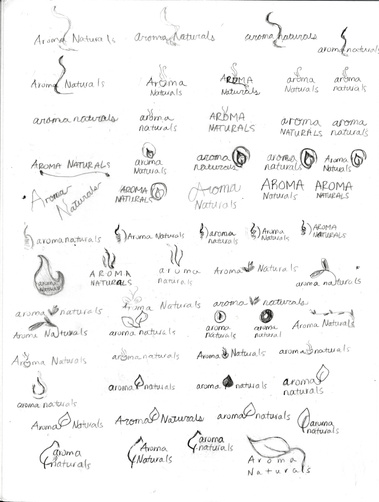 Aroma Naturals
aroma Naturals
aroma naturals
aroma naturals
Aroma Naturals
Aroma
Naturals
AROMA
Naturals
aroma
Naturals
aroma
naturals
aroma naturals
aroma
naturals
AROMA
NATURALS
aroma
NATURALS
aroma
naturals
AROMA NATURALS
aroma
NATURALS
aroma
naturals
aroma
NATURALS
Aroma
naturals
Aroma
Naturals
AROMA
NATURALS
Aroma
Naturals
AROMA
Naturals
AROMA
NATURALS
aroma naturals
Aroma Naturals
aroma
naturals
Aroma
Naturals
AROMA
NATURALS
aroma
naturals
AROMA
NATURALS
aroma
naturals
Aroma Naturals
aroma naturals
aroma naturals
Aroma Naturals
aroma naturals
Aroma Naturals
aroma naturals
aroma
naturals
aroma
natural
Aroma Naturals
Aroma Naturals
aroma naturals
Aroma Naturals
aroma naturals
aroma naturals
aroma naturals
aroma naturals
aroma
naturals
Aroma Naturals
Aroma Naturals
aroma naturals
aroma
naturals
aroma
naturals
Aroma
Naturals
aroma
naturals
Aroma
Naturals